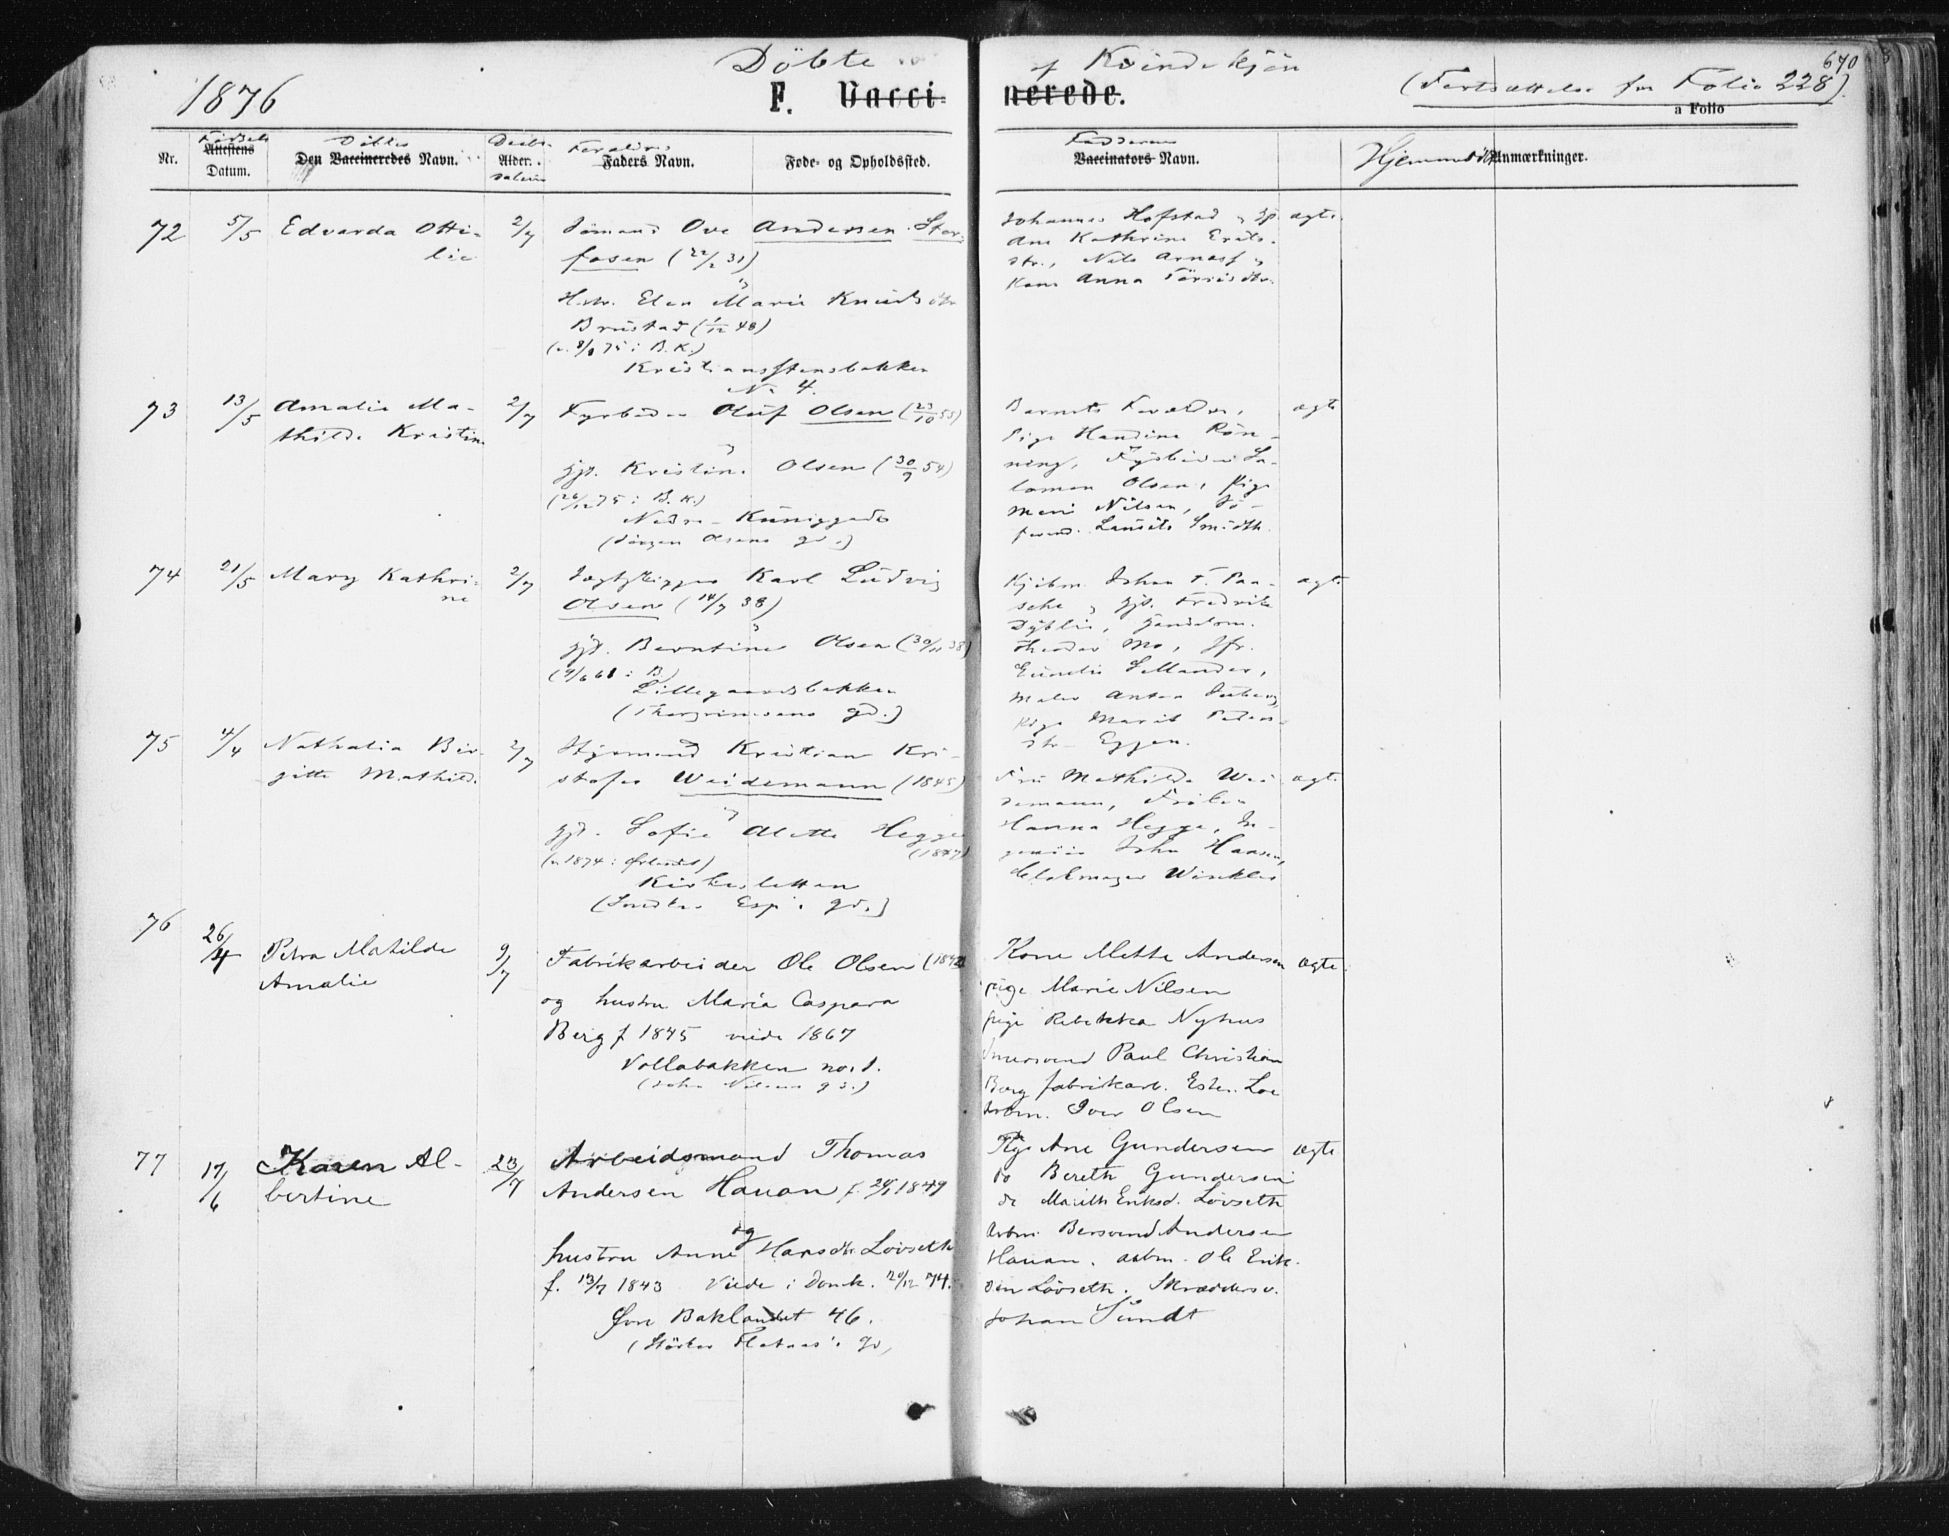 670
1876
Döbte af Kvindekjön
(Fortsættelse fra Folio 228).
F. Vaccinerede.
a Folio
Nr.
Födsels
Attestens
Datum.
Döbtes
Den Vaccineredes Navn.
Daabs
Alder.
datum
Foraldres
Faders Navn.
Føde- og Opholdssted.
Fadderenes
Vaccinators Navn.
Hjemmedöbt
Anmærkninger.
72 5/5 Edvarda Otti-
lie
2/7 Sömand Ove Andersen Stor-
fosen (22/2 31)
Hstr. Elen Marie Knudsdtr
Brustad (1/12 48)
(v. 8/8 75 i B. K.)
Kristianstensbakken
No 4.
Johannes Hofstad
Ane Kathrine Eriks-
dtr., Nils Arnasf
Kone Anna
ægte
73 13/5 Amalie Ma-
thilde Kristine
2/7 Fyrböder Oluf Olsen (23/10 55)
gjt. Kristine Olsen (30/9 54)
(26/12 75 i B. K.)
Nedre
(Jörgen Olsens gd.)
Barnets Forældre,
Pige Handine Rön-
ning, Fyrböder Sa-
lomon Olsen, Pige
Marie Nilsen,
Lauits Smidth
ægte
74 21/5 Mary Kathri-
ne
2/7 Jagtskipper Karl Ludvig
Olsen (14/7 38)
gjt. Berntine Olsen (30/11 38)
(4/6 61 i B)
Lillegaardsbakken
(Thorgrimsens gd.)
Kjöbm. Johan F. Paa-
sche, gjt. Fredrikke
Dyblie,
Theodor Mo, Jfr.
Sellander,
Maler Anton
Pige Marit Peders-
dtr Eggen.
ægte
75 4/4 Nathalia Bir-
gitte Mathilde
2/7 Styrmand Kristian Kri-
stofer Weidemann (1845)
gjt. Sofie Alette Hegge
(1847)
(v. 1874 i Ørlandet)
Kirkesletten
(Snedker Esp's gd.)
Fru Mathilde Wei-
demann, Fröken
Hanna Hegge, In-
geniör John Hansen,
Winkler
ægte
76
26/4 Petra Matilde
Amalie
9/7 Fabrikarbeider Ole Olsen (1842)
og hustru Maria Caspara
Berg f 1845 viede 1867
Vollabakken no. 1.
(John Nilsens gd.)
Kone Mette Andersen
pige Marie Nilsen
pige Rebekka Nyhus
Paul Christian
Berg fabrikarb. Esten Loe
arbm. Iver Olsen
ægte
77 17/6 Karen Al-
bertine
23/7 Arbeidsmand Thomas
Andersen Hauan f. 24/1 1849
og
hustru Anne Hansdtr Lövseth
f. 13/7 1843 Viede i Domk. 20/12 74.
Øvre Baklandet 46.
(Flataas's gd)
Pige Ane Gundersen
do Bereth Gundersen
do Marith Eriksd. Lövseth
Arbm. Bersvend Andersen
Hauan. arbm. Ole Erik-
sen Lövseth. Skræddersv.
Johan Sundt
ægte